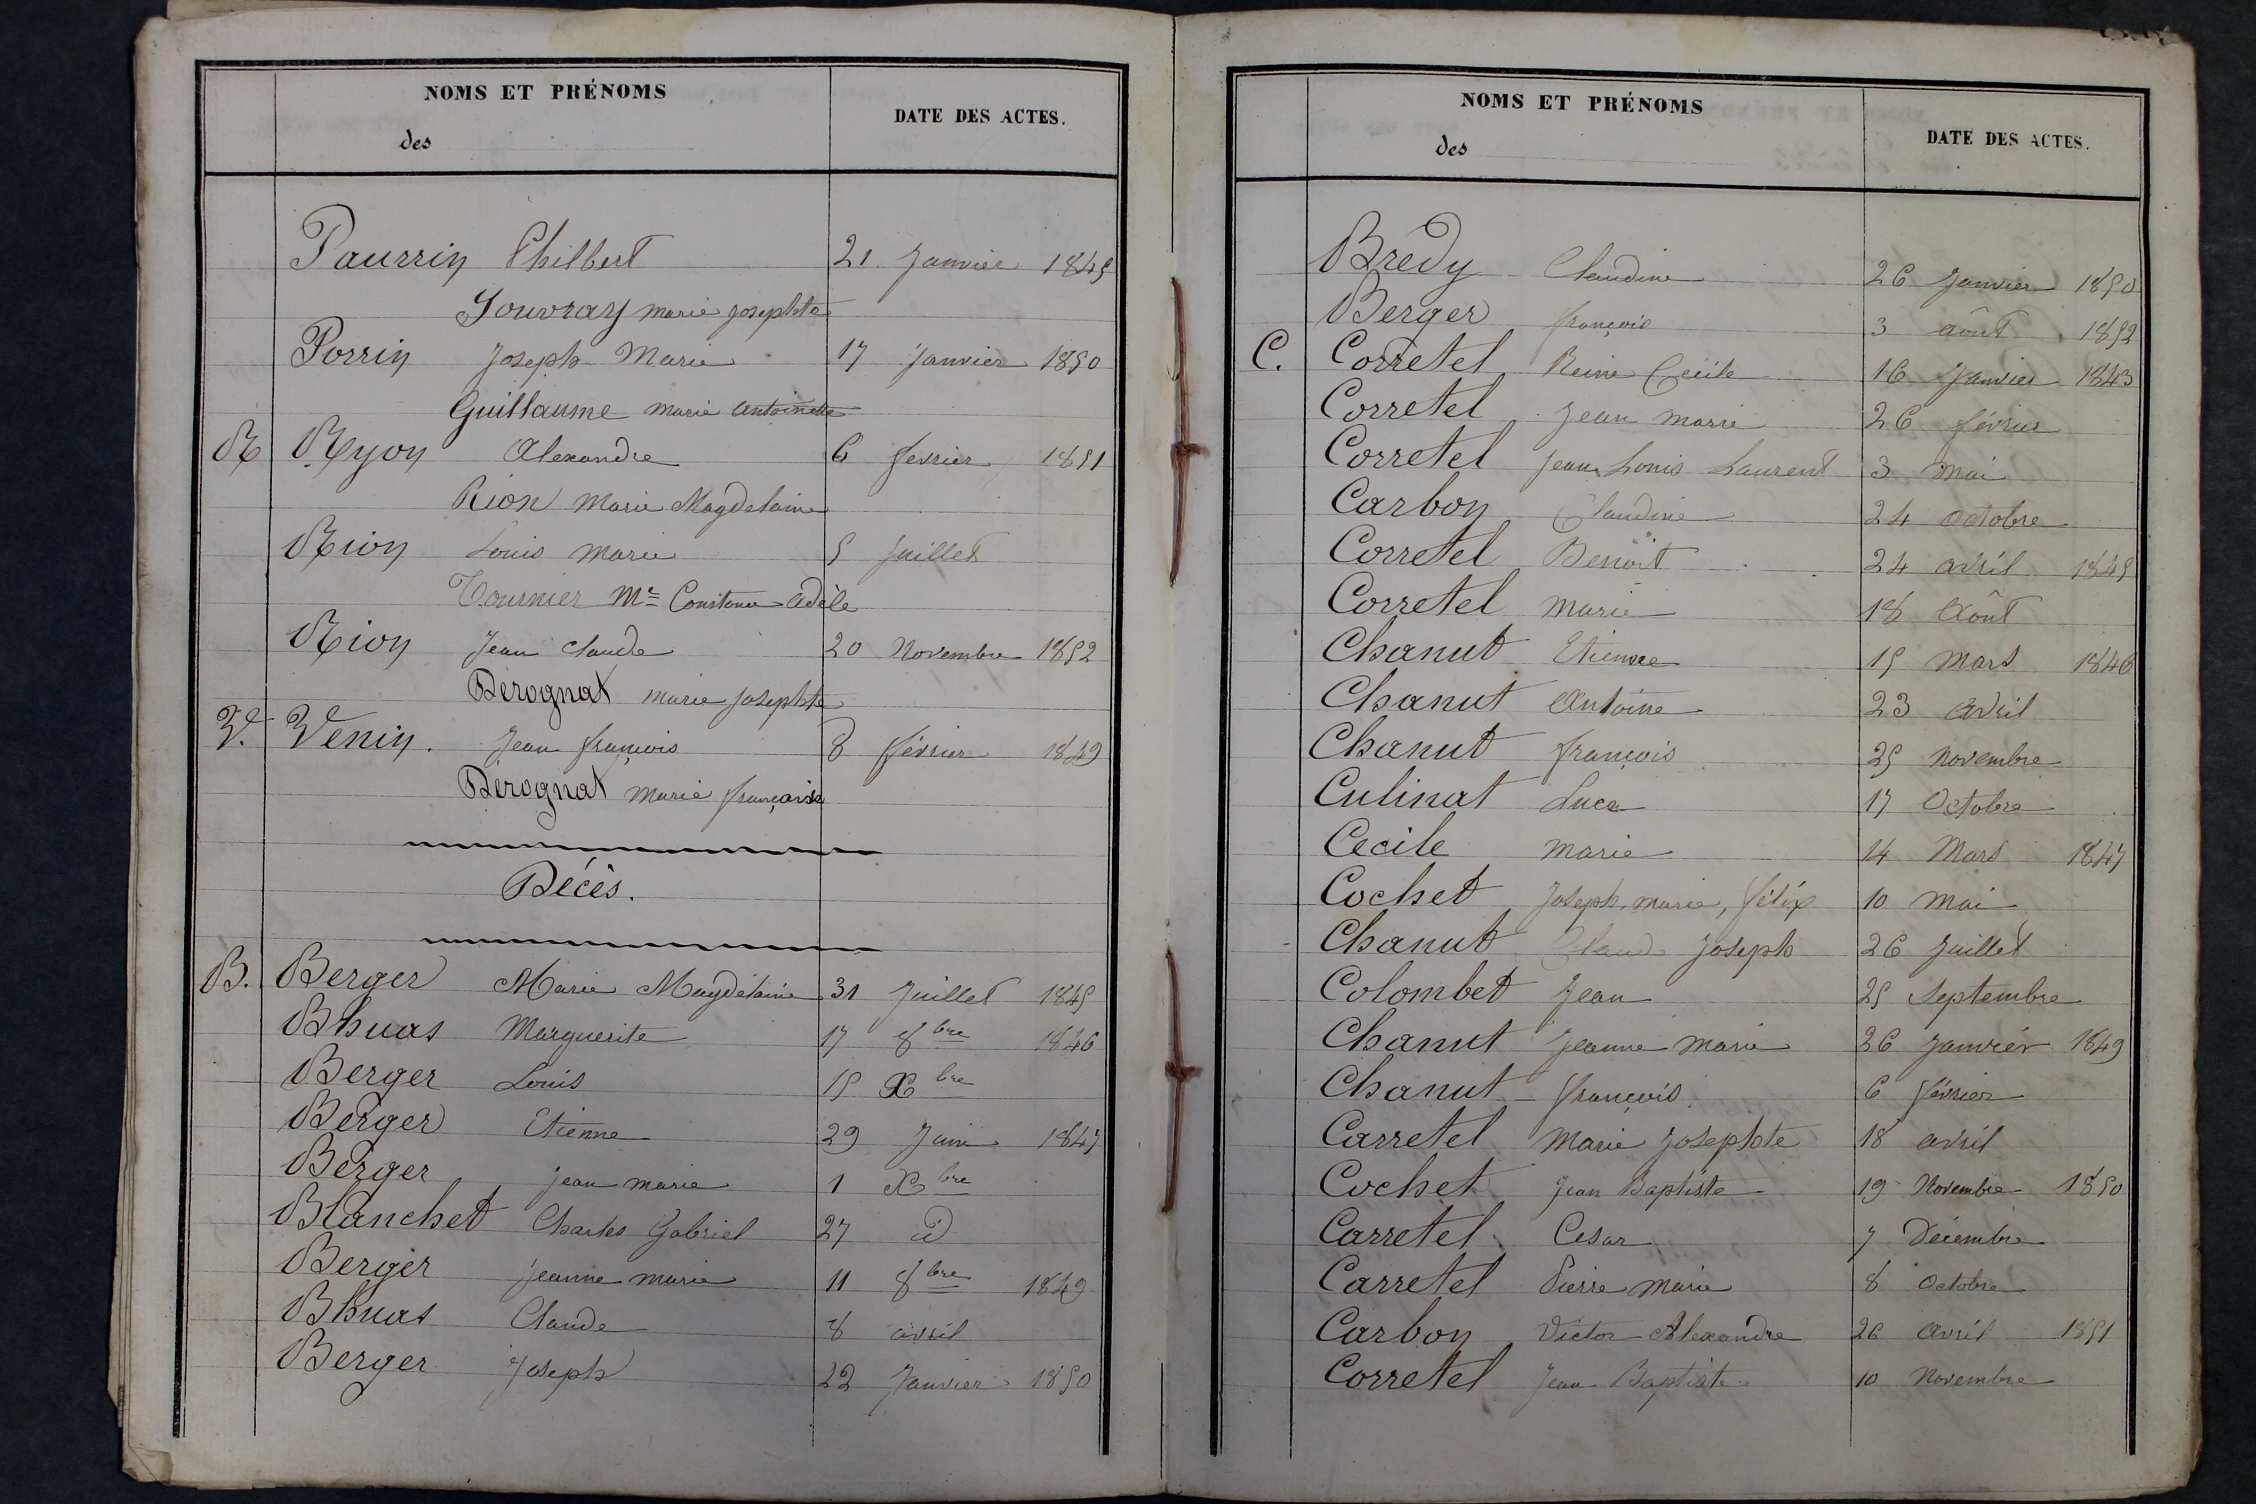 NOMS ET PRÉNOMS
des
DATE DES ACTES.
Paurrin Philbert 21 Janvier 1845
Jouvray marie josephte
Porrin Joseph Marie 17 Janvier 1850
Guillaume marie antoinette
R Ryon Alexandre 6 fevrier 1851
Rion Marie Magdelaine
Rion Louis Marie 5 Juillet
Tournier Me Constance Adèle
Rion Jean Claude 20 Novembre 1852
Derognat marie Josephte
V. Venin. Jean françois 8 février 1849
Dérognat marie françoise
Décès.
B. Berger Marie Magdelaine 31 Juillet 1845
Bhuas Marguerite 17 8bre 1846
Berger Louis 15 Xbre
Berger Etienne 29 Juin 1847
Berger jean marie 1 Xbre
Blanchet Charles Gabriel 27 d
Berger jeanne marie 11 8bre 1849
Bhuas Claude 8 avril
Berger Joseph 22 Janvier 1850
NOMS ET PRÉNOMS
des
DATE DES ACTES.
Bredy Claudine 26 Janvier 1850
Berger françois 3 août 1852
C. Corretel Reine Cecile 16 Janvier 1843
Corretel Jean Marie 26 février
Corretel Jean Louis Laurent 3 Mai
Carbon Claudine 24 Octobre
Corretel Benoit 24 avril 1845
Corretel Marie 18 Août
Chanut Etienne 15 Mars 1846
Chanut Antoine 23 Avril
Chanut françois 25 Novembre
Culinat Luce 17 Octobre
Cecile Marie 14 Mars 1847
Cochet Joseph, marie, félix 10 Mai
Chanut Claude Joseph 26 Juillet
Colombet Jean 25 Septembre
Chanut Jeanne Marie 26 Janvier 1849
Chanut françois 6 février
Carretel Marie Josephte 18 avril
Cochet Jean Baptiste 19 Novembre 1850
Carretel Cesar 7 Décembre
Carretel Pierre Marie 8 Octobre
Carbon Victor Alexandre 26 Avril 1851
Corretel Jean Baptiste 10 Novembre